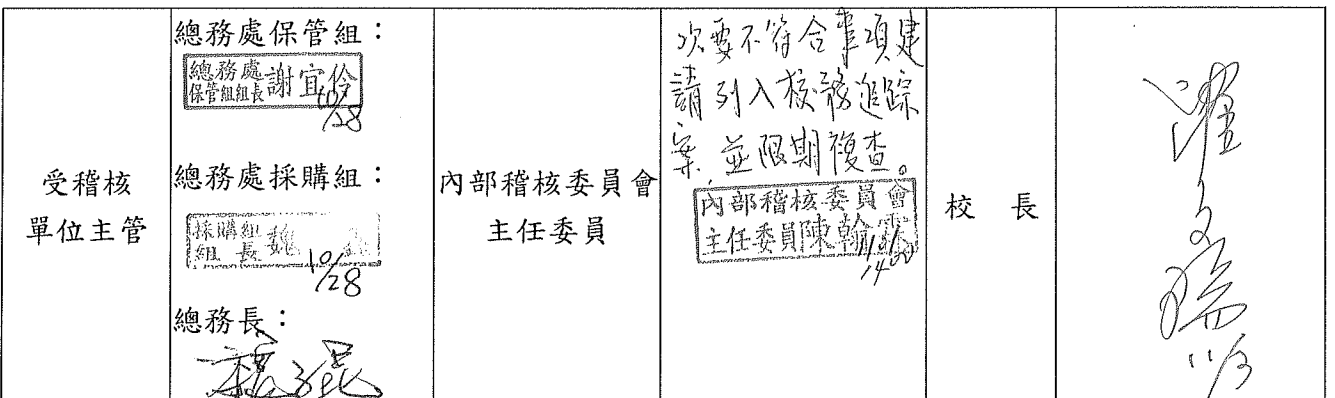 受稽核
單位主管
總務處保管組：
總務處
保管組組長 謝宜伶
10/28
總務處採購組：
採購組
組長 魏
10/28
總務長：
內部稽核委員會
主任委員
次要不符合事項建
請列入校務追踪
案，並限期複查。
內部稽核委員會
主任委員陳翰霖
校 長